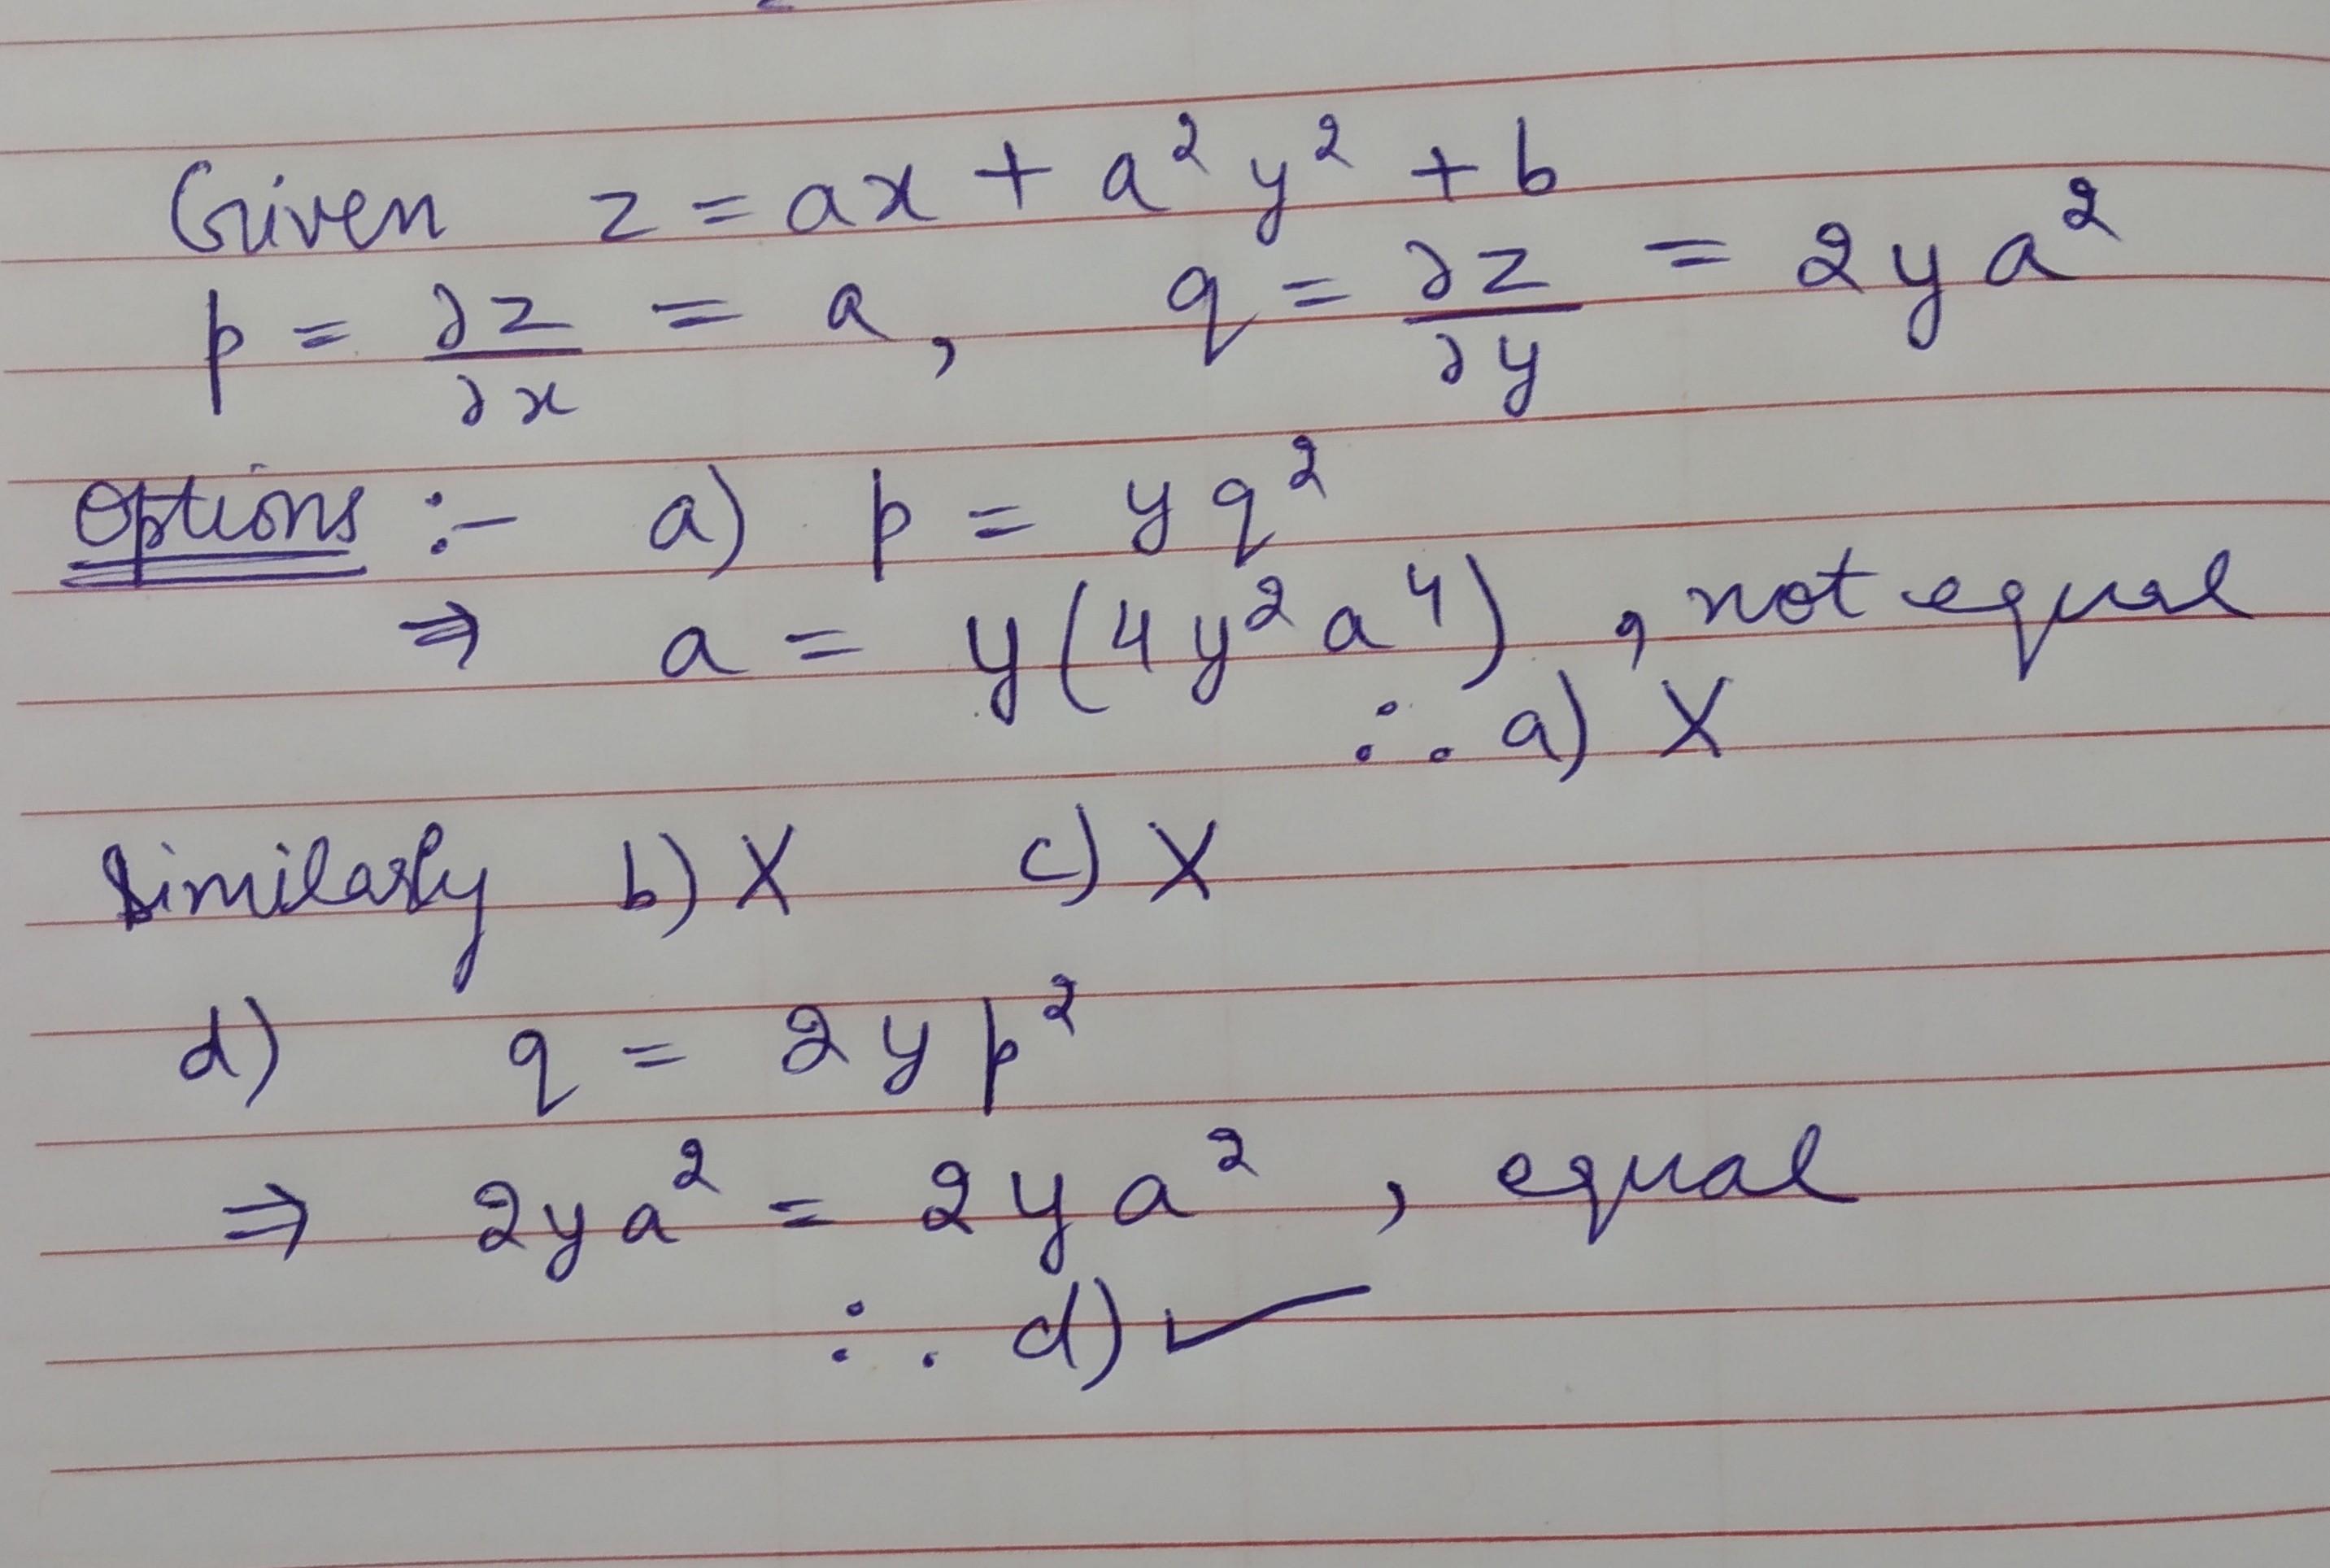 Given z = ax + a² y² + b
p = ∂z/∂x = a, q = ∂z/∂y = 2ya²
Options :- a) p = yq²
⇒ a = y(4y²a⁴), not equal
∴ a) X
Similarly b) X c) X
d) q = 2yp²
⇒ 2ya² = 2ya², equal
∴ d) ✓